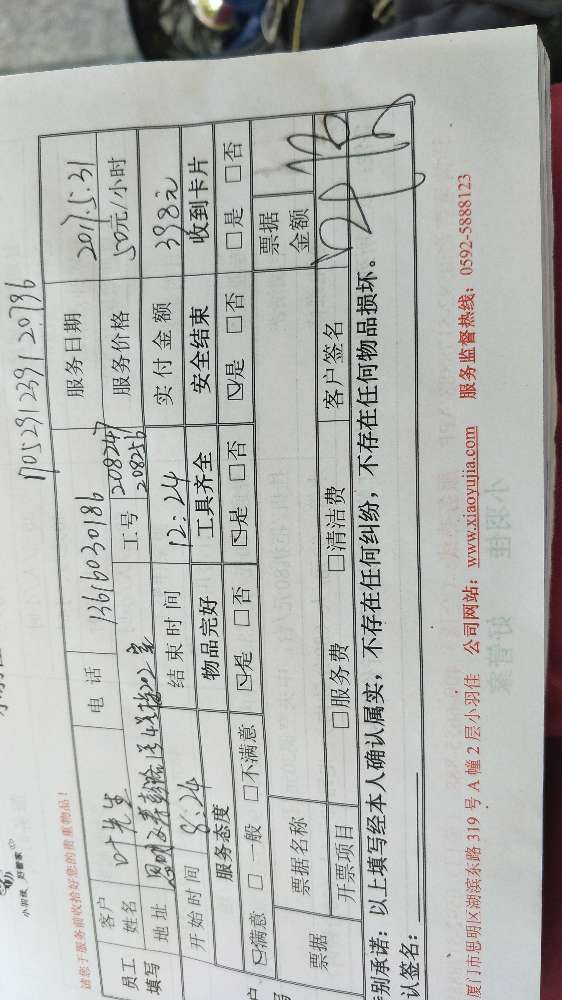 小羽佳 好管家
17052912391 20796
请您于服务前收拾好您的贵重物品！
员工填写 客户姓名 叶先生 电话 13616030186 服务日期 2017.5.31
地址 工号 208247 208256 服务价格 50元/小时
开始时间 8:24 结束时间 12:24 实付金额 398元
服务态度 物品完好 工具齐全 安全结束 收到卡片
☑满意 □一般 □不满意 ☑是 □否 ☑是 □否 ☑是 □否 □是 □否
票据 票据名称 票据金额
开票项目 □服务费 □清洁费 客户签名
别承诺：以上填写经本人确认属实，不存在任何纠纷，不存在任何物品损坏。
认签名：
厦门市思明区湖滨东路 319 号 A 幢 2 层小羽佳 公司网站：www.xiaoyujia.com 服务监督热线：0592-5888123